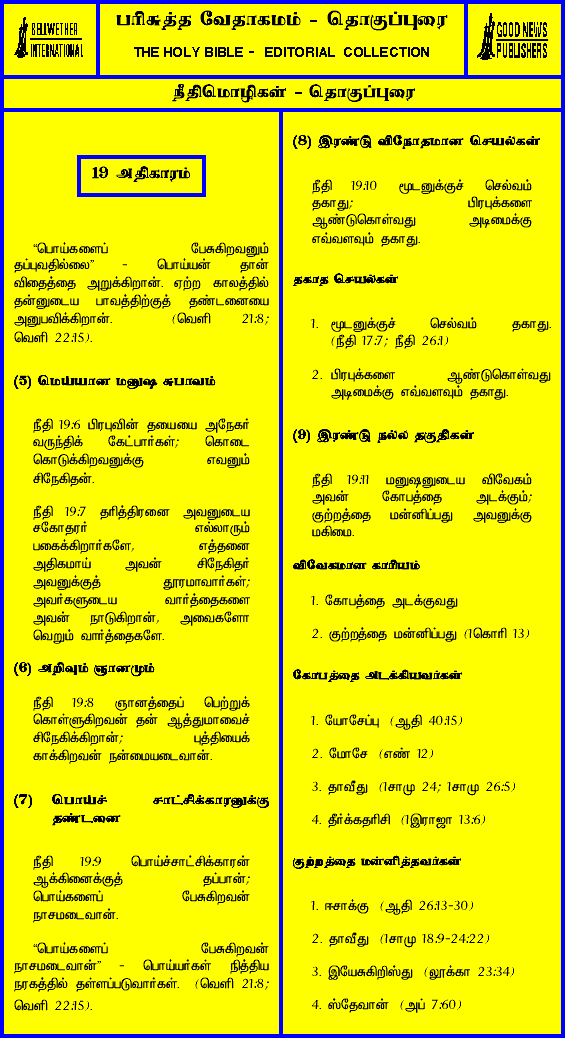 BELLWETHER
INTERNATIONAL
பரிசுத்த வேதாகமம் - தொகுப்புரை
THE HOLY BIBLE - EDITORIAL COLLECTION
GOOD NEWS
PUBLISHERS
நீதிமொழிகள் - தொகுப்புரை
19 அதிகாரம்
“பொய்களைப் பேசுகிறவனும்
தப்புவதில்லை” - பொய்யன் தான்
விதைத்தை அறுக்கிறான். ஏற்ற காலத்தில்
தன்னுடைய பாவத்திற்குத் தண்டனையை
அனுபவிக்கிறான். (வெளி 21:8;
வெளி 22:15).
(5) மெய்யான மனுஷ சுபாவம்
நீதி 19:6 பிரபுவின் தயையை அநேகர்
வருந்திக் கேட்பார்கள்; கொடை
கொடுக்கிறவனுக்கு எவனும்
சிநேகிதன்.
நீதி 19:7 தரித்திரனை அவனுடைய
சகோதரர் எல்லாரும்
பகைக்கிறார்களே, எத்தனை
அதிகமாய் அவன் சிநேகிதர்
அவனுக்குத் தூரமாவார்கள்;
அவர்களுடைய வார்த்தைகளை
அவன் நாடுகிறான், அவைகளோ
வெறும் வார்த்தைகளே.
(6) அறிவும் ஞானமும்
நீதி 19:8 ஞானத்தைப் பெற்றுக்
கொள்ளுகிறவன் தன் ஆத்துமாவைச்
சிநேகிக்கிறான்; புத்தியைக்
காக்கிறவன் நன்மையடைவான்.
(7) பொய்ச் சாட்சிக்காரனுக்கு
தண்டனை
நீதி 19:9 பொய்ச்சாட்சிக்காரன்
ஆக்கினைக்குத் தப்பான்;
பொய்களைப் பேசுகிறவன்
நாசமடைவான்.
“பொய்களைப் பேசுகிறவன்
நாசமடைவான்” - பொய்யர்கள் நித்திய
நரகத்தில் தள்ளப்படுவார்கள். (வெளி 21:8;
வெளி 22:15).
(8) இரண்டு விநோதமான செயல்கள்
நீதி 19:10 மூடனுக்குச் செல்வம்
தகாது; பிரபுக்களை
ஆண்டுகொள்வது அடிமைக்கு
எவ்வளவும் தகாது.
தகாத செயல்கள்
1. மூடனுக்குச் செல்வம் தகாது.
(நீதி 17:7; நீதி 26:1)
2. பிரபுக்களை ஆண்டுகொள்வது
அடிமைக்கு எவ்வளவும் தகாது.
(9) இரண்டு நல்ல தகுதிகள்
நீதி 19:11 மனுஷனுடைய விவேகம்
அவன் கோபத்தை அடக்கும்;
குற்றத்தை மன்னிப்பது அவனுக்கு
மகிமை.
விவேகமான காரியம்
1. கோபத்தை அடக்குவது
2. குற்றத்தை மன்னிப்பது (1கொரி 13)
கோபத்தை அடக்கியவர்கள்
1. யோசேப்பு (ஆதி 40:15)
2. மோசே (எண் 12)
3. தாவீது (1சாமு 24; 1சாமு 26:5)
4. தீர்க்கதரிசி (1இராஜா 13:6)
குற்றத்தை மன்னித்தவர்கள்
1. ஈசாக்கு (ஆதி 26:13-30)
2. தாவீது (1சாமு 18:9-24:22)
3. இயேசுகிறிஸ்து (லூக்கா 23:34)
4. ஸ்தேவான் (அப் 7:60)